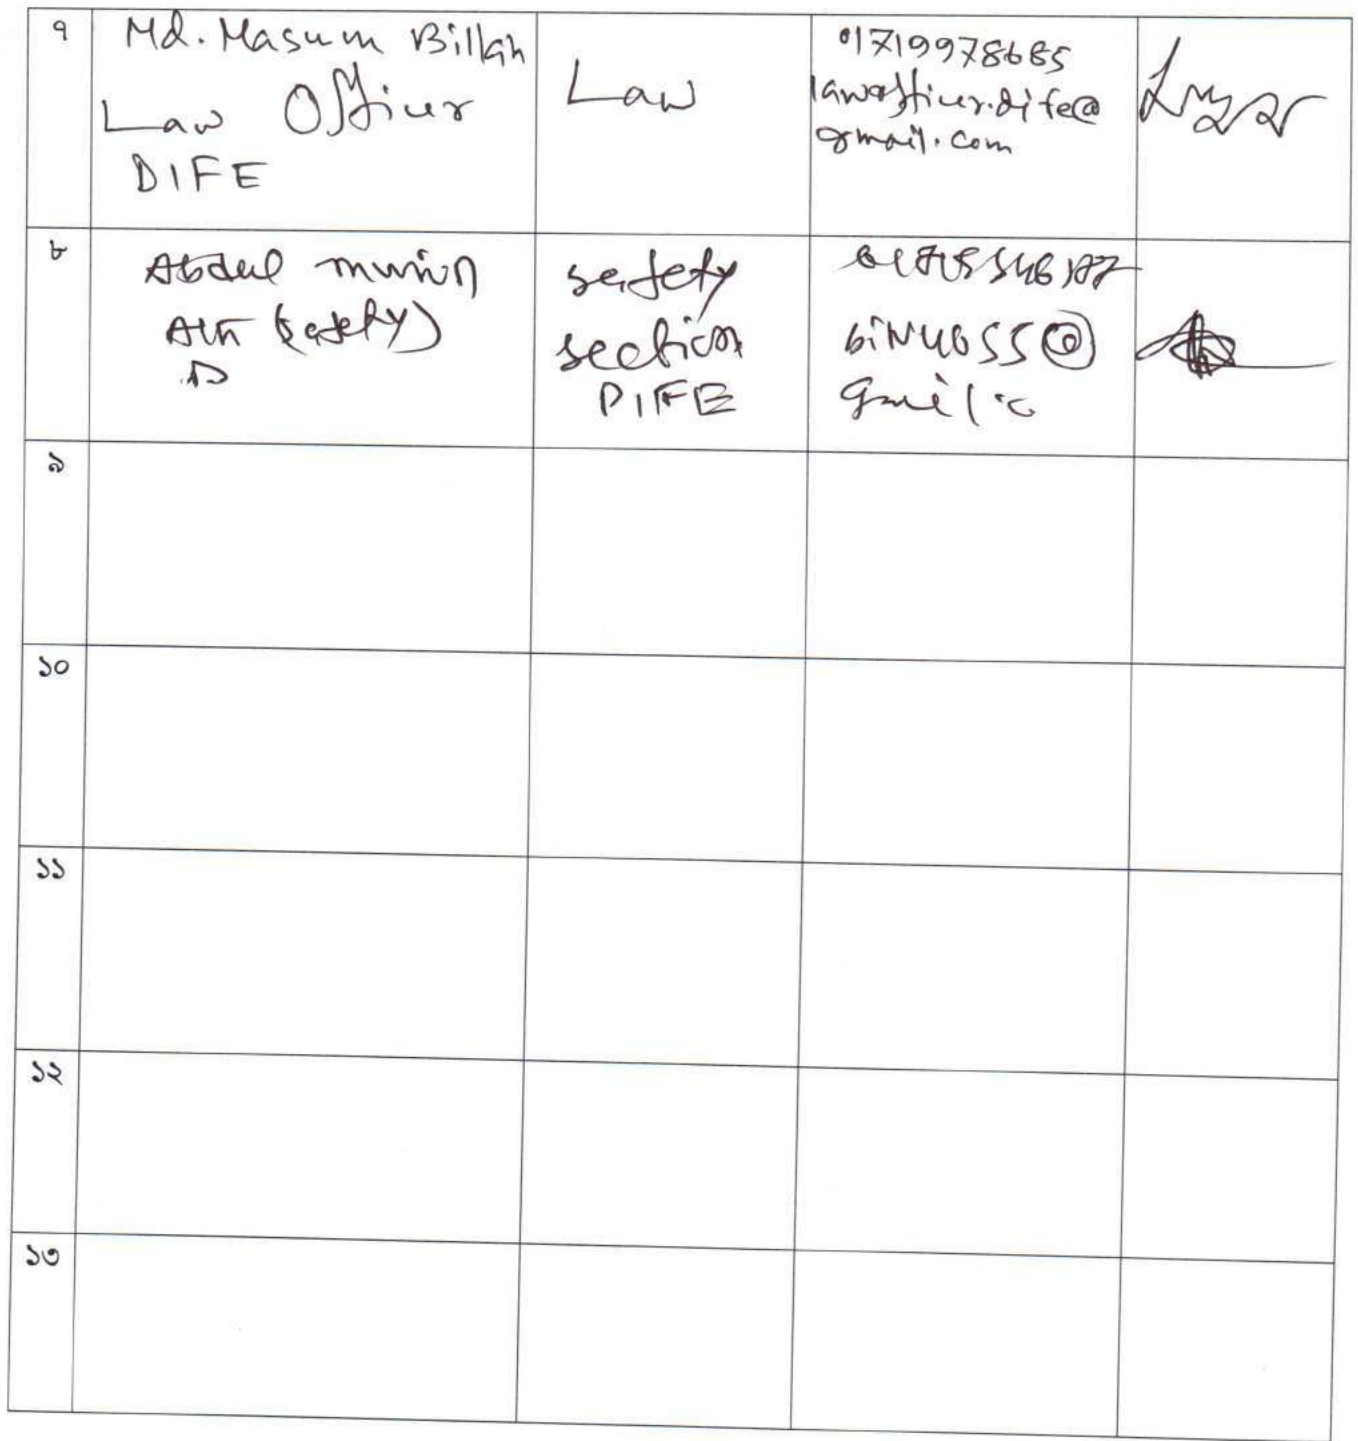 ৭
Md. Masum Billah
Law Officer
DIFE
Law
01719978685
lawofficer.dife@
gmail.com
৮
Abdul
(safety)
safety
section
DIFE
৯
১০
১১
১২
১৩